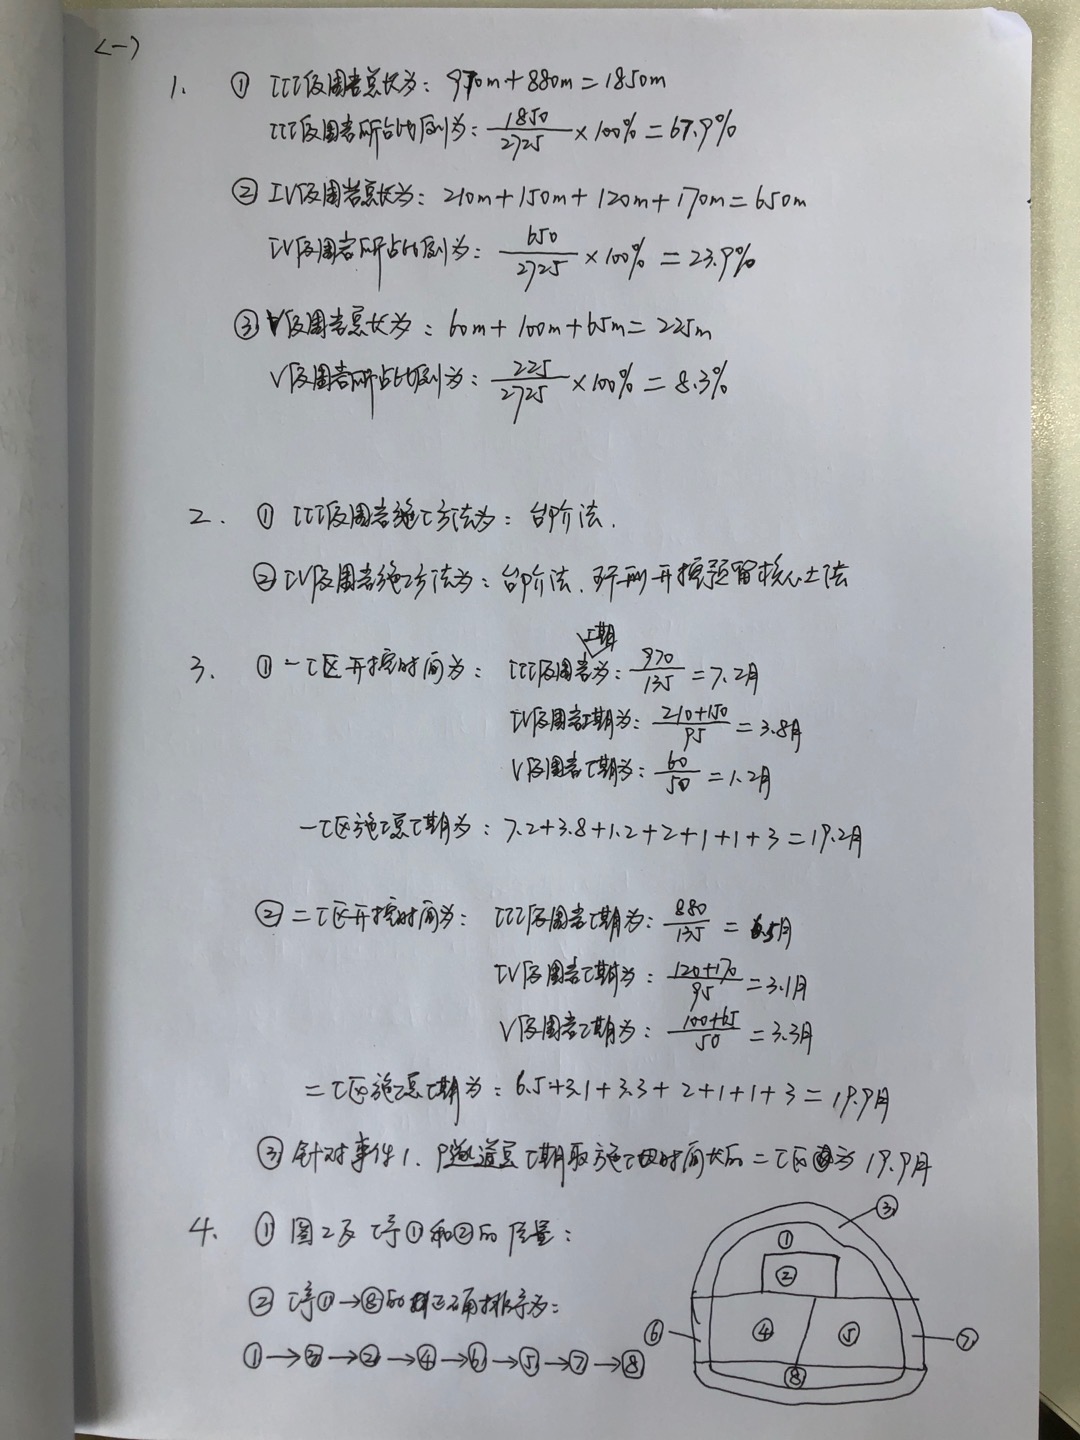 <一>
1. ① III级围岩总长为：970m+880m=1850m
III级围岩所占比例为：1850/2725×100%=67.9%
② IV级围岩总长为：210m+150m+120m+170m=650m
IV级围岩所占比例为：650/2725×100%=23.9%
③ V级围岩总长为：60m+100m+65m=225m
V级围岩所占比例为：225/2725×100%=8.3%
2. ① III级围岩施工方法为：台阶法.
② IV级围岩施工方法为：台阶法、环形开挖预留核心土法
3. ① 一工区开挖时间为：III级围岩工期为：970/135=7.2月
IV级围岩工期为：210+150/95=3.8月
V级围岩工期为：60/50=1.2月
一工区施工总工期为：7.2+3.8+1.2+2+1+1+3=19.2月
② 二工区开挖时间为：III级围岩工期为：880/135=6.5月
IV级围岩工期为：120+170/95=3.1月
V级围岩工期为：100+65/50=3.3月
二工区施工总工期为：6.5+3.1+3.3+2+1+1+3=19.9月
③ 针对事件1、隧道总工期取施工时间长的二工区为19.9月
4. ① 图2及工序①和②的
② 工序①→⑧的正确排序为：
①→③→②→④→⑥→⑤→⑦→⑧
③
①
②
④
⑤
⑥
⑦
⑧